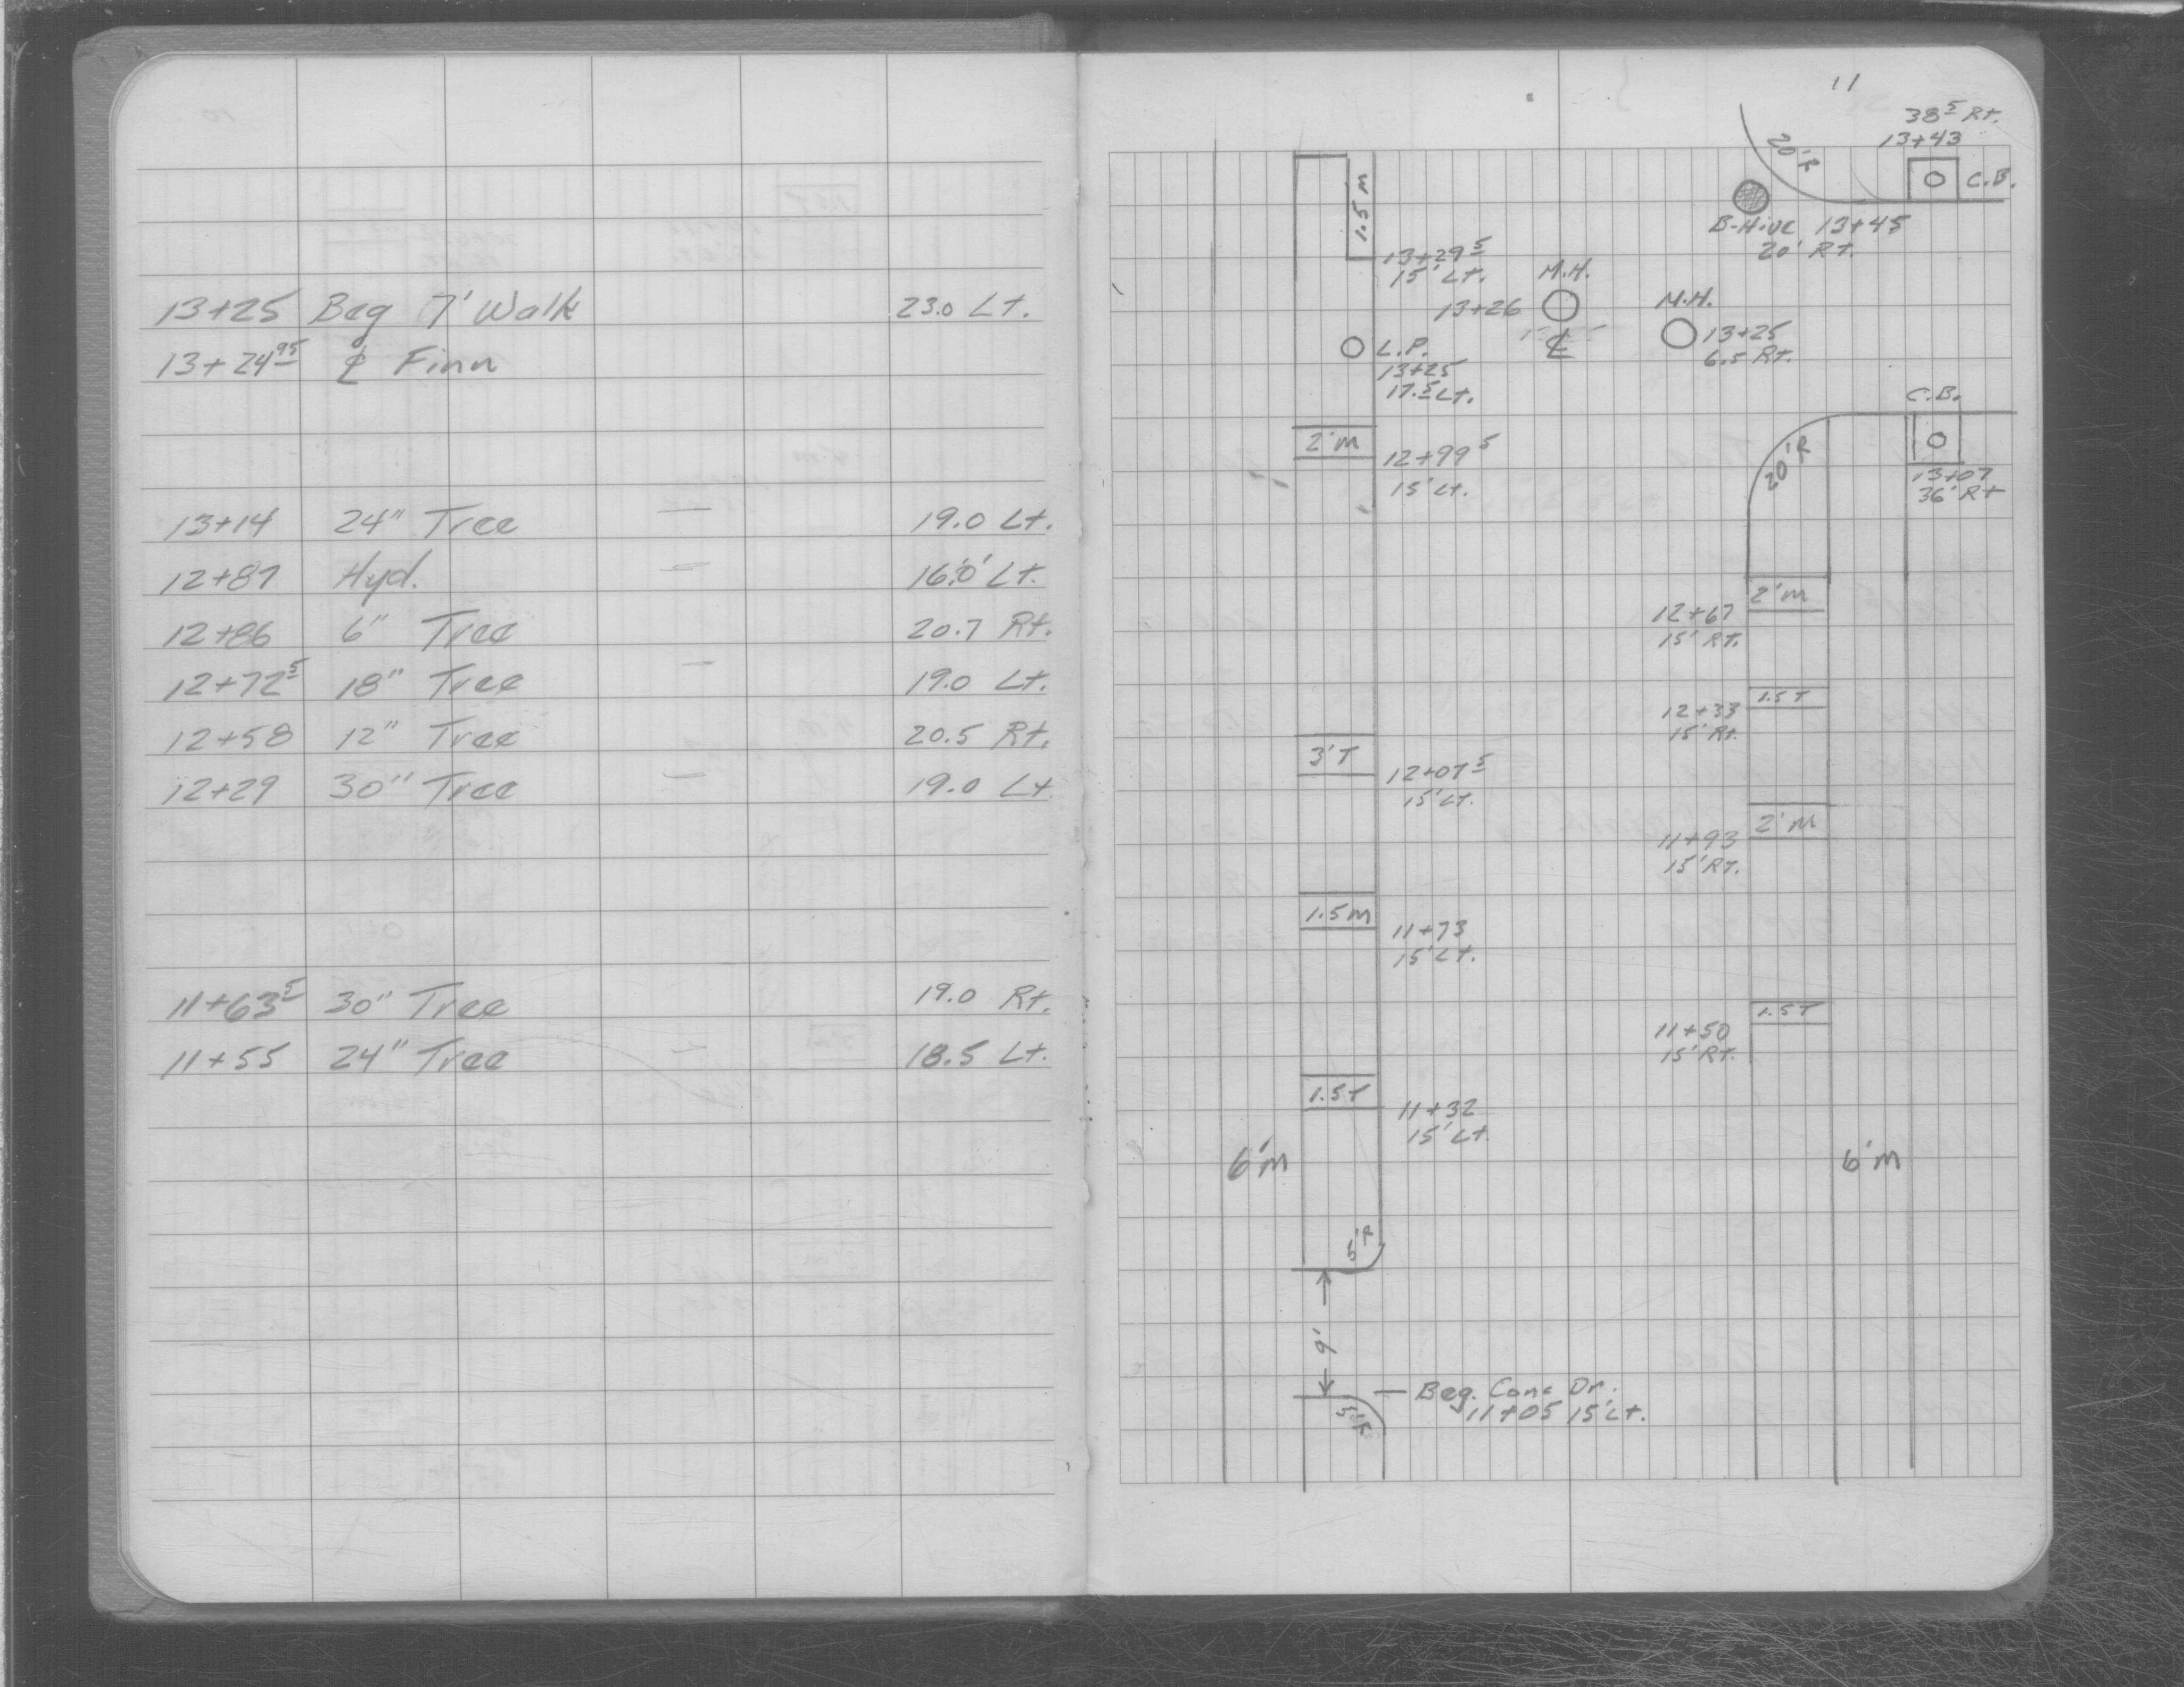 13+25 Beg 7' Walk 23.0 Lt.
13+24⁹⁵ ℄ Finn
13+14 24" Tree — 19.0 Lt.
12+87 Hyd. — 16.0' Lt.
12+86 6" Tree 20.7 Rt.
12+72⁵ 18" Tree — 19.0 Lt.
12+58 12" Tree 20.5 Rt.
12+29 30" Tree — 19.0 Lt
11+63⁵ 30" Tree 19.0 Rt.
11+55 24" Tree — 18.5 Lt.
11
38⁵ Rt.
13+43
20'R
C.B.
B-Hive 13+45
20' Rt.
1.5 m
13+29⁵
15' Lt.
M.H.
13+26
℄
M.H.
13+25
6.5 Rt.
L.P.
13+25
17.⁵ Lt.
C.B.
20'R
13+07
36' Rt
2' m
12+99⁵
15' Lt.
2' m
12+67
15' Rt.
1.5 T
12+33
15' Rt.
3' T
12+07⁵
15' Lt.
2' m
11+93
15' Rt.
1.5 m
11+73
15' Lt.
1.5 T
11+50
15' Rt.
1.5 T
11+32
15' Lt.
6' m
6' m
5'R
9'
Beg. Conc Dr.
11+05 15' Lt.
5'R